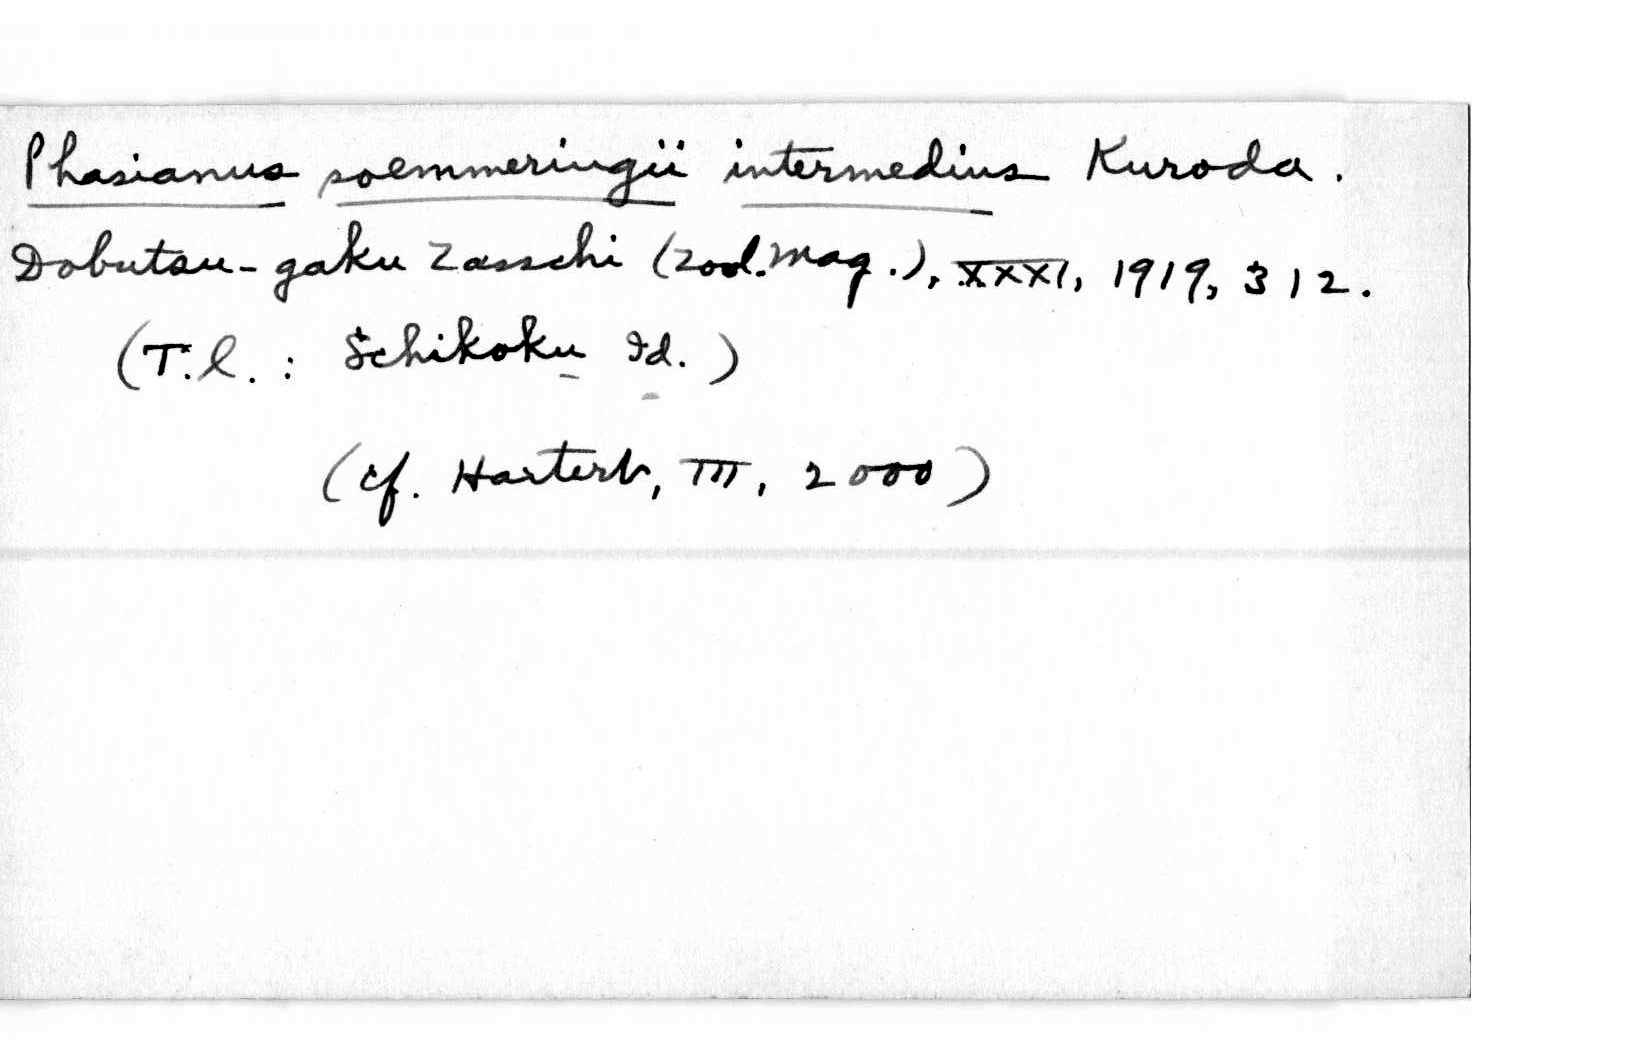 Phasianus soemmeringii intermedius Kuroda.
Dobutsu-gaku Zasschi (Zool. Mag.), XXXI, 1919, 312.
(T.l.: Schikoku Id.)
(cf. Hartert, III, 2000)